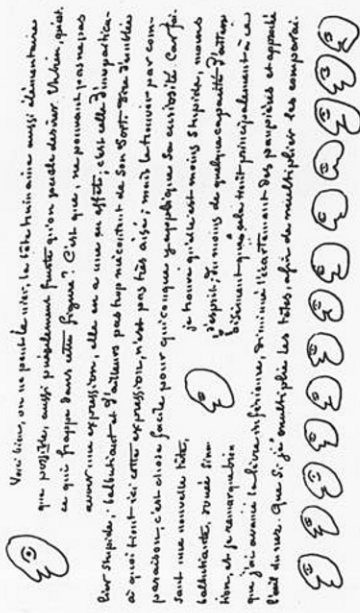 Voici bien, on ne peut le nier, la tête humaine aussi élémentaire
que possible, aussi puérilement fruste qu'on puisse désirer. Eh bien, qu'est-
ce qui frappe dans cette figure ? C'est que, ne pouvant pas ne pas
avoir une expression, elle en a une en effet ; c'est celle d'un particu-
lier stupide, balbutiant et d'ailleurs pas trop mécontent de son sort. Dire d'emblée
à quoi tient ici cette expression, n'est pas très aisé ; mais le trouver par com-
paraison, c'est chose facile pour quiconque y applique sa curiosité. Car fai-
sant une nouvelle tête, je trouve qu'elle est moins stupide, moins
balbutiante, douée sinon d'esprit, du moins de quelque capacité d'atten-
tion, et je remarque bien aisément que cela tient principalement à ce
que j'ai avancé la lèvre inférieure, diminué l'écartement des paupières et approché
l'œil du nez. Que si je multiplie les têtes, afin de multiplier les comparai-